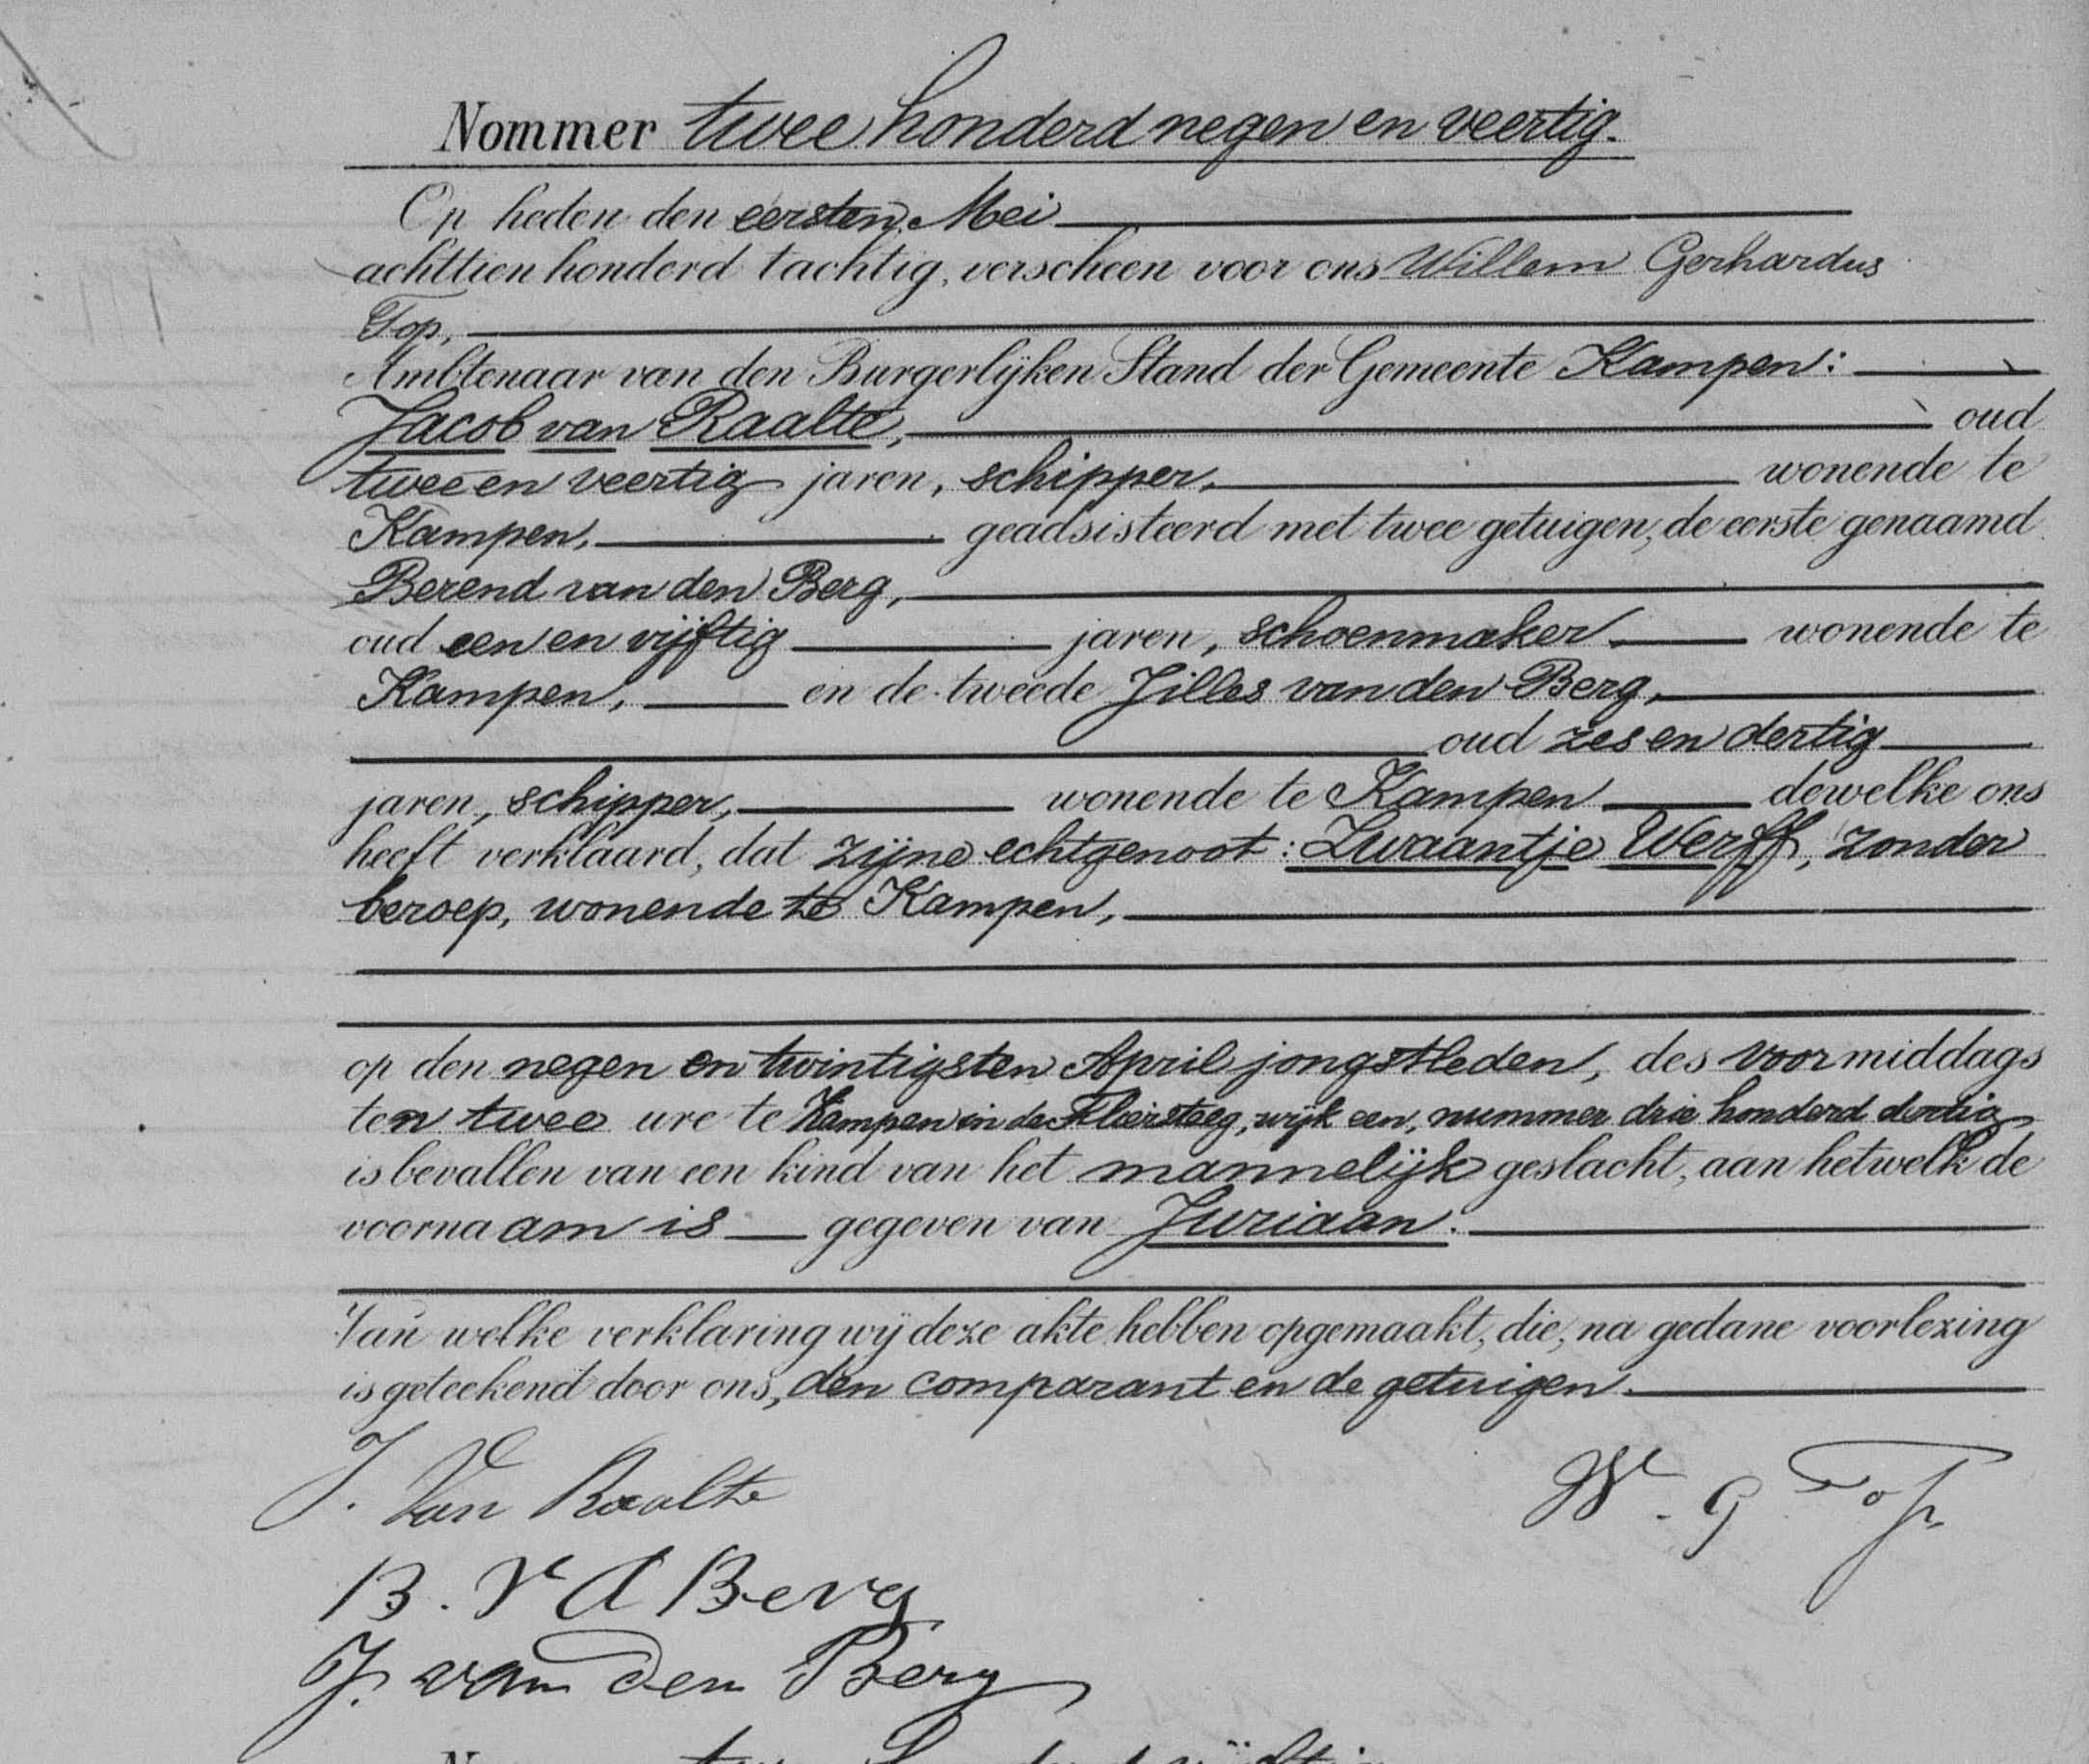 Nommer twee honderd negen en veertig.
Op heden den eersten Mei
achttien honderd tachtig, verscheen voor ons Willem Gerhardus
Top,
Ambtenaar van den Burgerlijken Stand der Gemeente Kampen:
Jacob van Raalte, oud
twee en veertig jaren, schipper, wonende te
Kampen, geadsisteerd met twee getuigen, de eerste genaamd
Berend van den Berg,
oud een en vijftig jaren, schoenmaker wonende te
Kampen, en de tweede Jilles van den Berg,
oud zes en dertig
jaren, schipper, wonende te Kampen dewelke ons
heeft verklaard, dat zijne echtgenoot: Zwaantje Werff, zonder
beroep, wonende te Kampen,
op den negen en twintigsten April jongstleden, des voormiddags
ten twee ure te Kampen in de wijk een, nummer drie honderd dertig
is bevallen van een kind van het mannelijk geslacht, aan hetwelk de
voornaam is gegeven van Juriaan.
Van welke verklaring wij deze akte hebben opgemaakt, die, na gedane voorlezing
is geteekend door ons, den comparant en de getuigen.
J. Van Raalte W. G Top
B. v d Berg
J. van den Berg